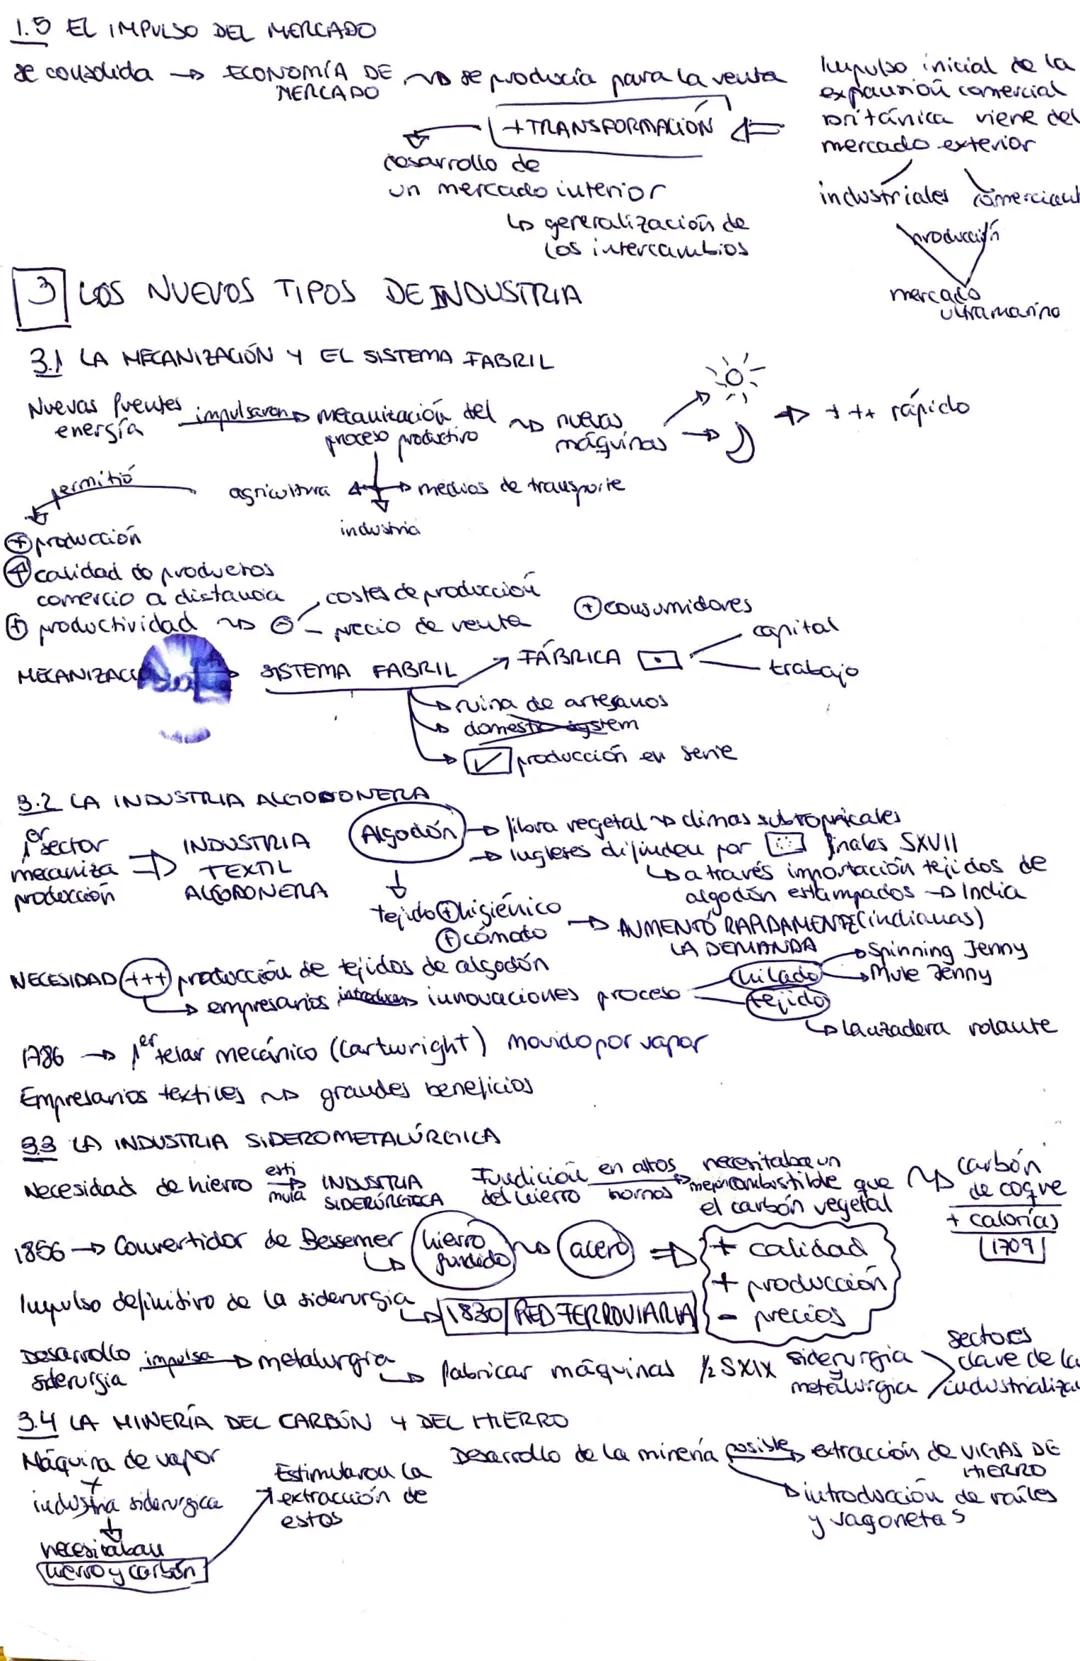 1.5 EL IMPULSO DEL MERCADO
se consolida → ECONOMÍA DE MERCADO → se producía para la venta
Impulso inicial de la
expansión comercial
británica viene del
mercado exterior
+ TRANSFORMACIÓN
desarrollo de
un mercado interior
↳ generalización de
los intercambios
industriales
producción
mercado
ultramarino
3 LOS NUEVOS TIPOS DE INDUSTRIA
3.1 LA MECANIZACIÓN Y EL SISTEMA FABRIL
Nuevas fuentes
energía
impulsaron → mecanización del
proceso productivo
→ nuevas
máquinas
→ +++ rápido
permitió
agricultura ← → medios de transporte
industria
+ producción
+ calidad de productos
comercio a distancia
+ productividad → -
costes de producción
precio de venta
+ consumidores
SISTEMA FABRIL → FÁBRICA
capital
trabajo
→ ruina de artesanos
→ domestic system
→ ✓ producción en serie
3.2 LA INDUSTRIA ALGODONERA
1er sector
mecaniza
producción
⇒ INDUSTRIA
TEXTIL
ALGODONERA
Algodón → fibra vegetal → climas subtropicales
→ ingleses difunden por
finales SXVII
↳ a través importación tejidos de
algodón estampados → India
tejido + higiénico
+ cómodo
→ AUMENTÓ RAPIDAMENTE (indianas)
LA DEMANDA
NECESIDAD +++ producción de tejidos de algodón
↳ empresarios introducen innovaciones proceso
hilado
→ Spinning Jenny
→ Mule Jenny
tejido
↳ lanzadera volante
1786 → 1er telar mecánico (Cartwright) movido por vapor
Empresarios textiles → grandes beneficios
3.3 LA INDUSTRIA SIDEROMETALÚRGICA
Necesidad de hierro
esti
mula
→ INDUSTRIA
SIDERÚRGICA
Fundición
del hierro
en altos
hornos
→ necesitaba un
mejor combustible que
el carbón vegetal
→ carbón
de coque
+ calorías
1709
1856 → Convertidor de Bessemer
↳ hierro
fundido
→ acero ⇒
+ calidad
+ producción
- precios
Impulso definitivo de la siderurgia
↳ 1830 RED FERROVIARIA
Desarrollo
siderurgia
impulsa → metalurgia
↳ fabricar máquinas
1/2 SXIX siderurgia
metalurgia
sectores
clave de la
3.4 LA MINERÍA DEL CARBÓN Y DEL HIERRO
Máquina de vapor
+
industria siderúrgica
↓
necesitaban
hierro y carbón
Estimularon la
extracción de
estos
Desarrollo de la minería posible → extracción de VIGAS DE
HIERRO
→ introducción de raíles
y vagonetas